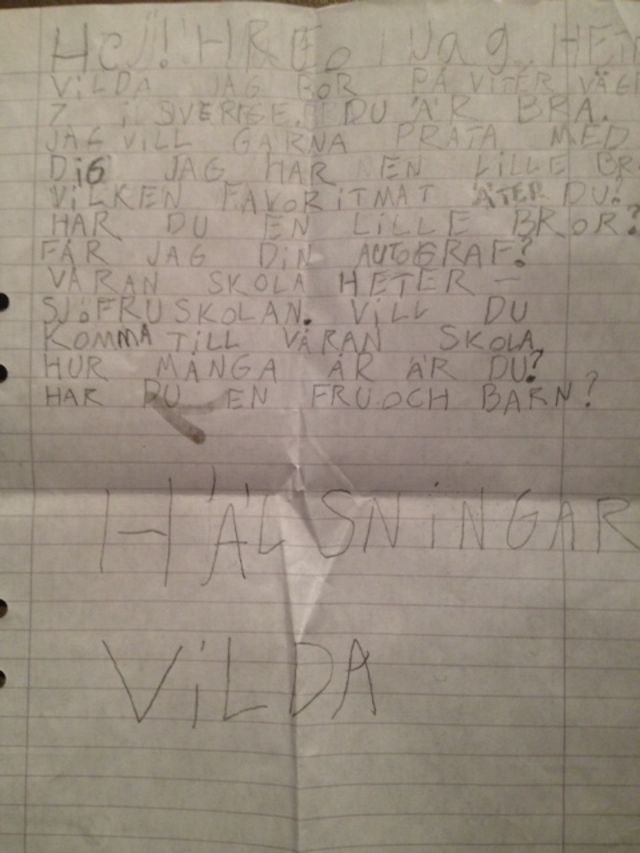 Hej! HREO Jag HET
VILDA JAG BOR PÅ VITER VÄG
7 i SVERIGE. DU ÄR BRA.
JAG VILL GÄRNA PRATA MED
DiG JAG HAR EN LILLE BR
VILKEN FAVORITMAT ÄTER DU?
HAR DU EN LILLE BROR?
FÅR JAG DIN AUTOGRAF?
VÅRAN SKOLA HETER –
SJÖFRUSKOLAN. VILL DU
KOMMA TILL VÅRAN SKOLA
HUR MÅNGA ÅR ÄR DU?
HAR DU EN FRU OCH BARN?
HÄLSNiNGAR
ViLDA